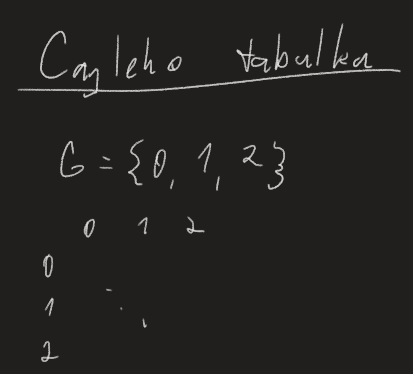 Cayleho tabulka
G = {0, 1, 2}
0 1 2
0
1 ⋱
2